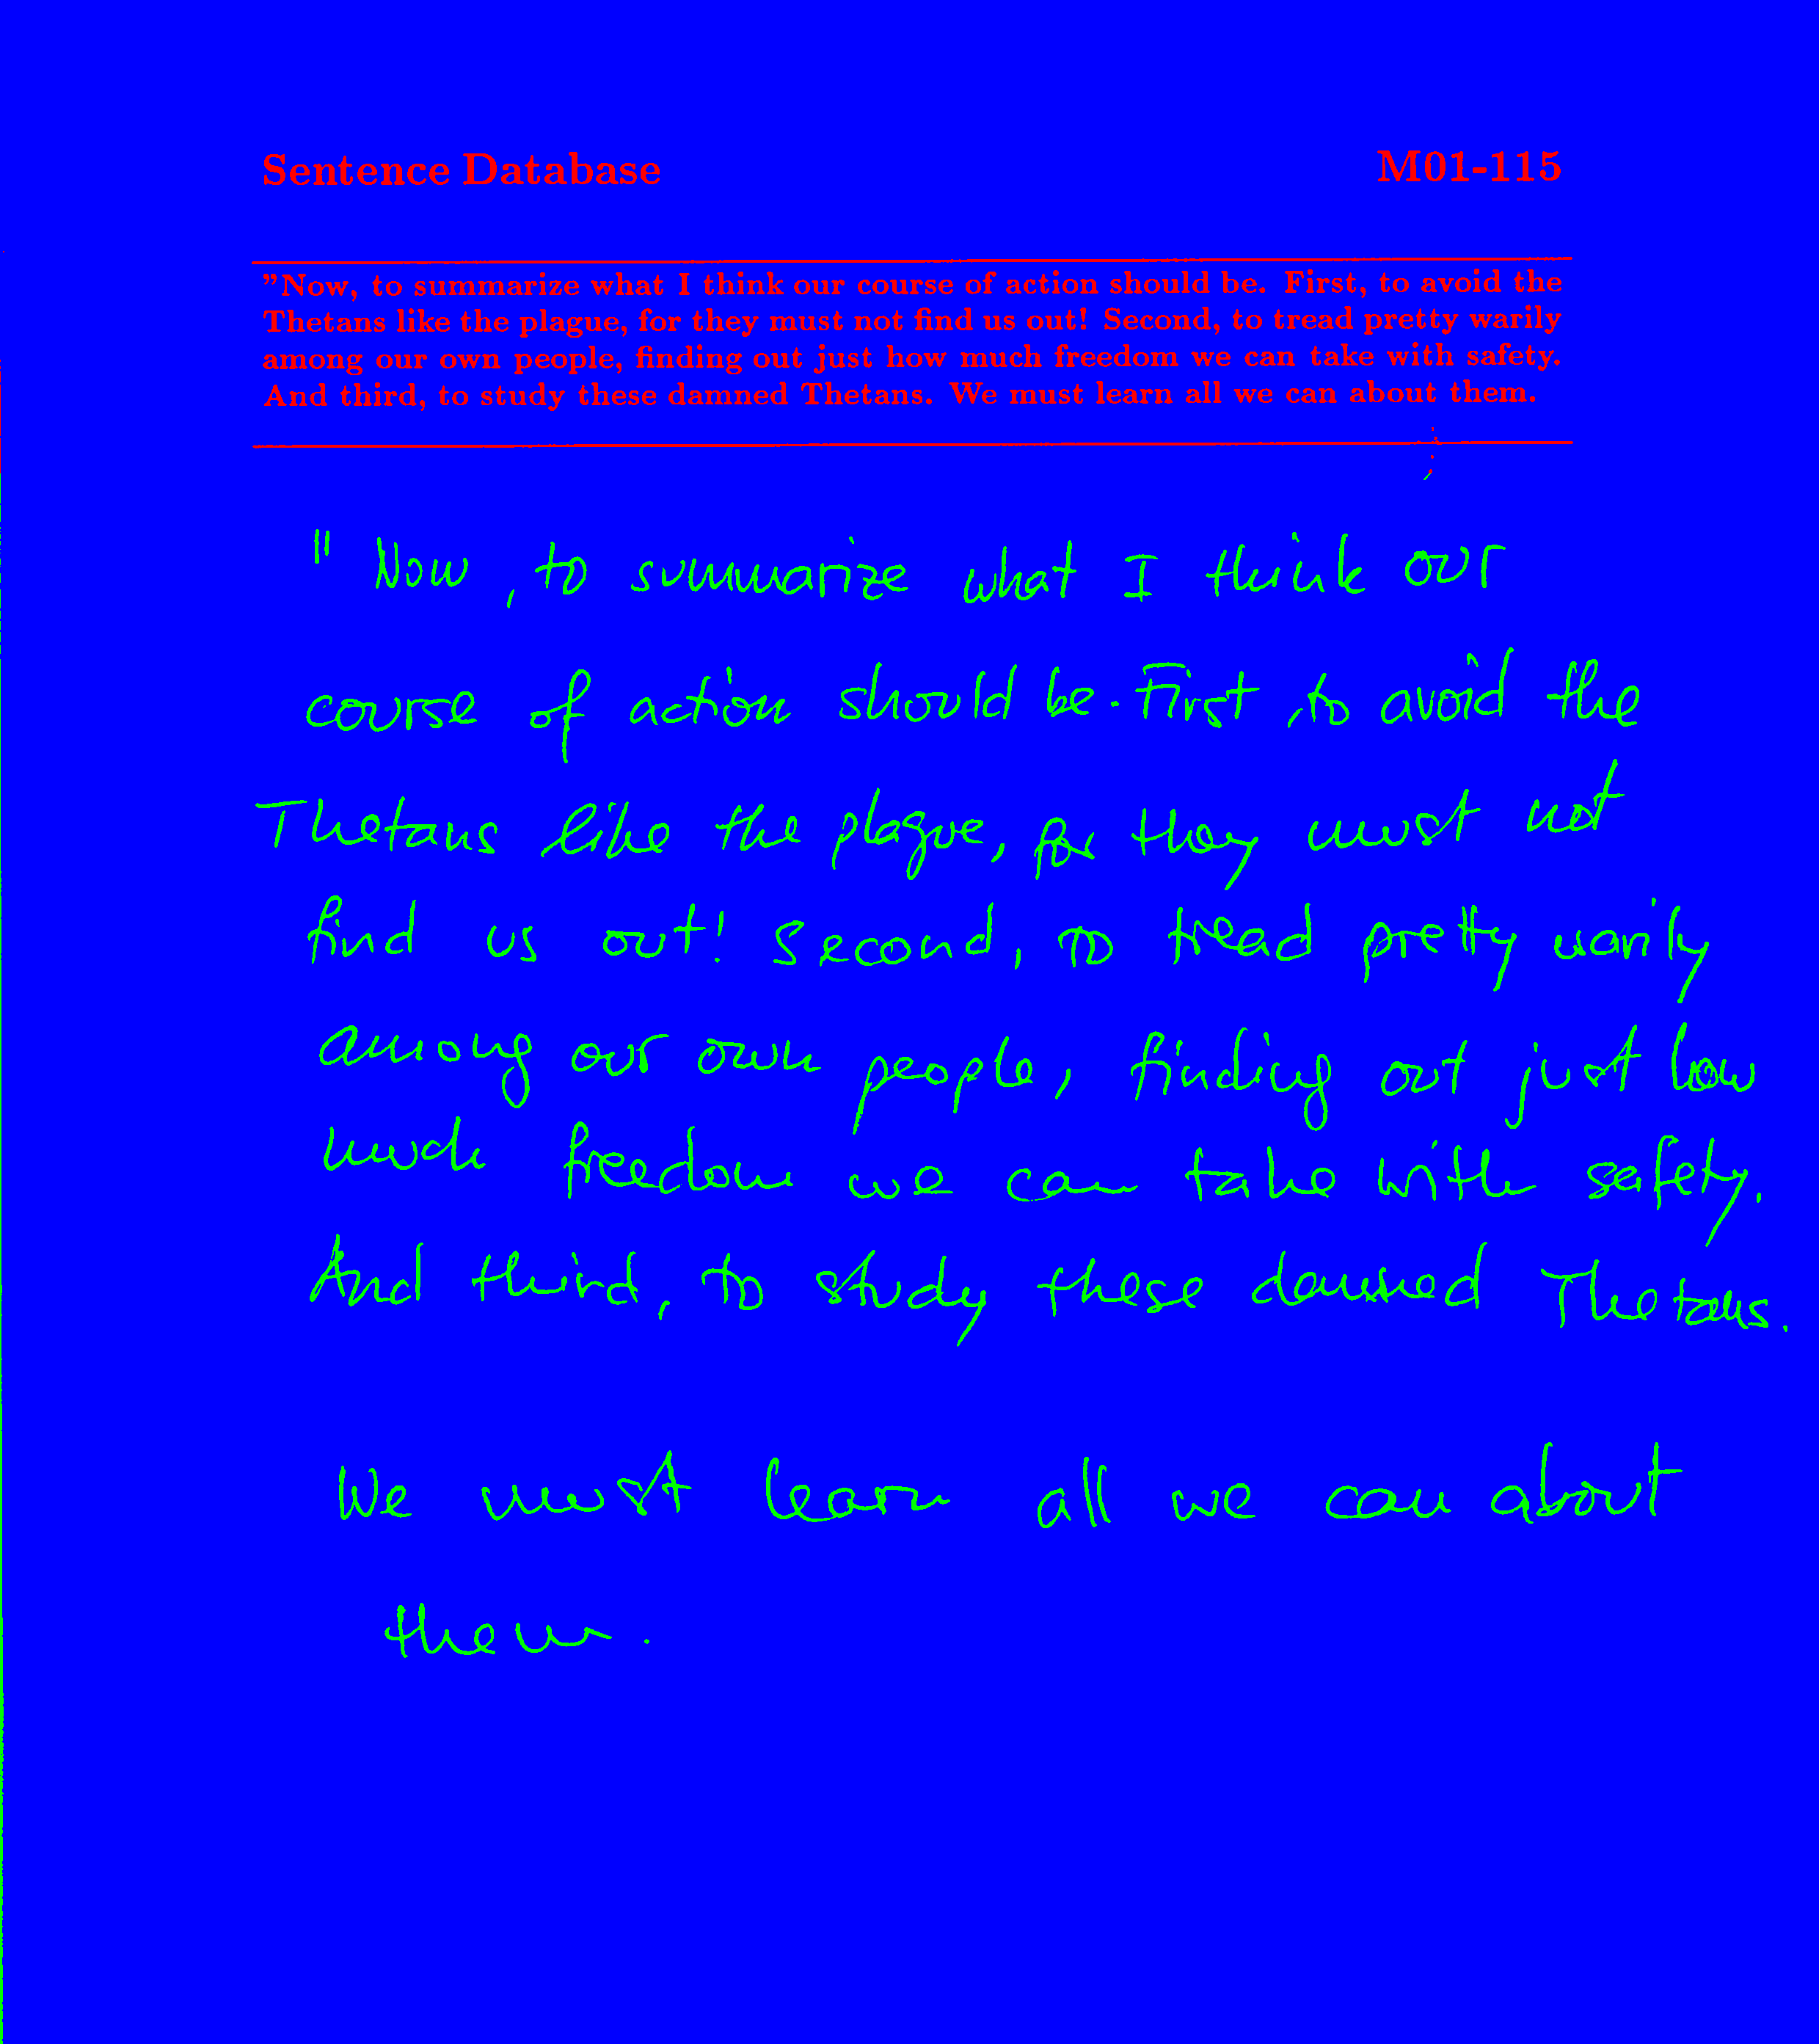 Sentence Database M01-115
"Now, to summarize what I think our course of action should be. First, to avoid the
Thetans like the plague, for they must not find us out! Second, to tread pretty warily
among our own people, finding out just how much freedom we can take with safety.
And third, to study these damned Thetans. We must learn all we can about them.
" Now, to summarize what I think our
course of action should be. First, to avoid the
Thetans like the plague, for they must not
find us out! Second, to tread pretty warily
among our own people, finding out just how
much freedom we can take with safety.
And third, to study these damned Thetans.
We must learn all we can about
them.